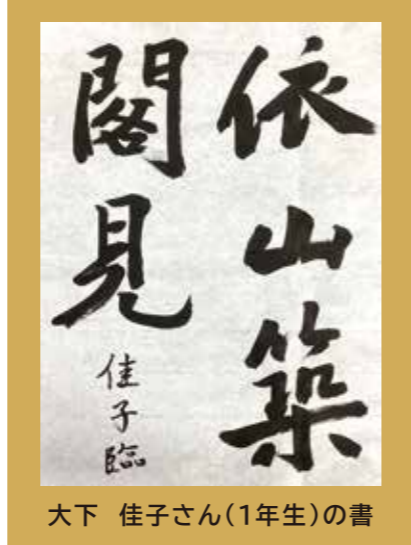 依山築
閣見
佳子臨
大下 佳子さん(1年生)の書